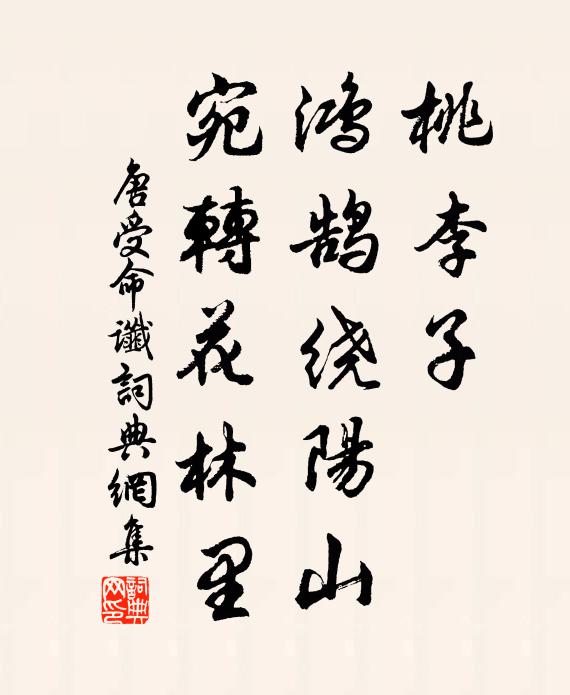 桃李子
鸿鹄绕陽山
宛轉花林里
唐受命讖詞典網集
詞典网印